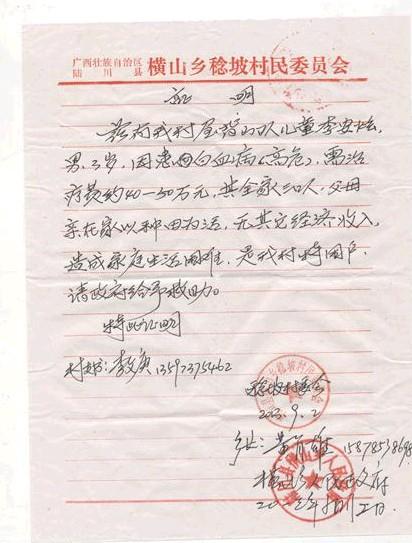 广西壮族自治区
陆川县
横山乡稔坡村民委员会
证 明
兹有我村屋背山队儿童李安
男,3岁,因患白血病(高危),需治
疗费约40—50万元,其全家三口人,父母
亲在家以种田为活,无其它经济收入,
造成家庭生活困难,是我村特困户,
请政府给予救助。
特此证明
村 13597375462
稔坡村委会
2013.9.2
横山乡人民政府